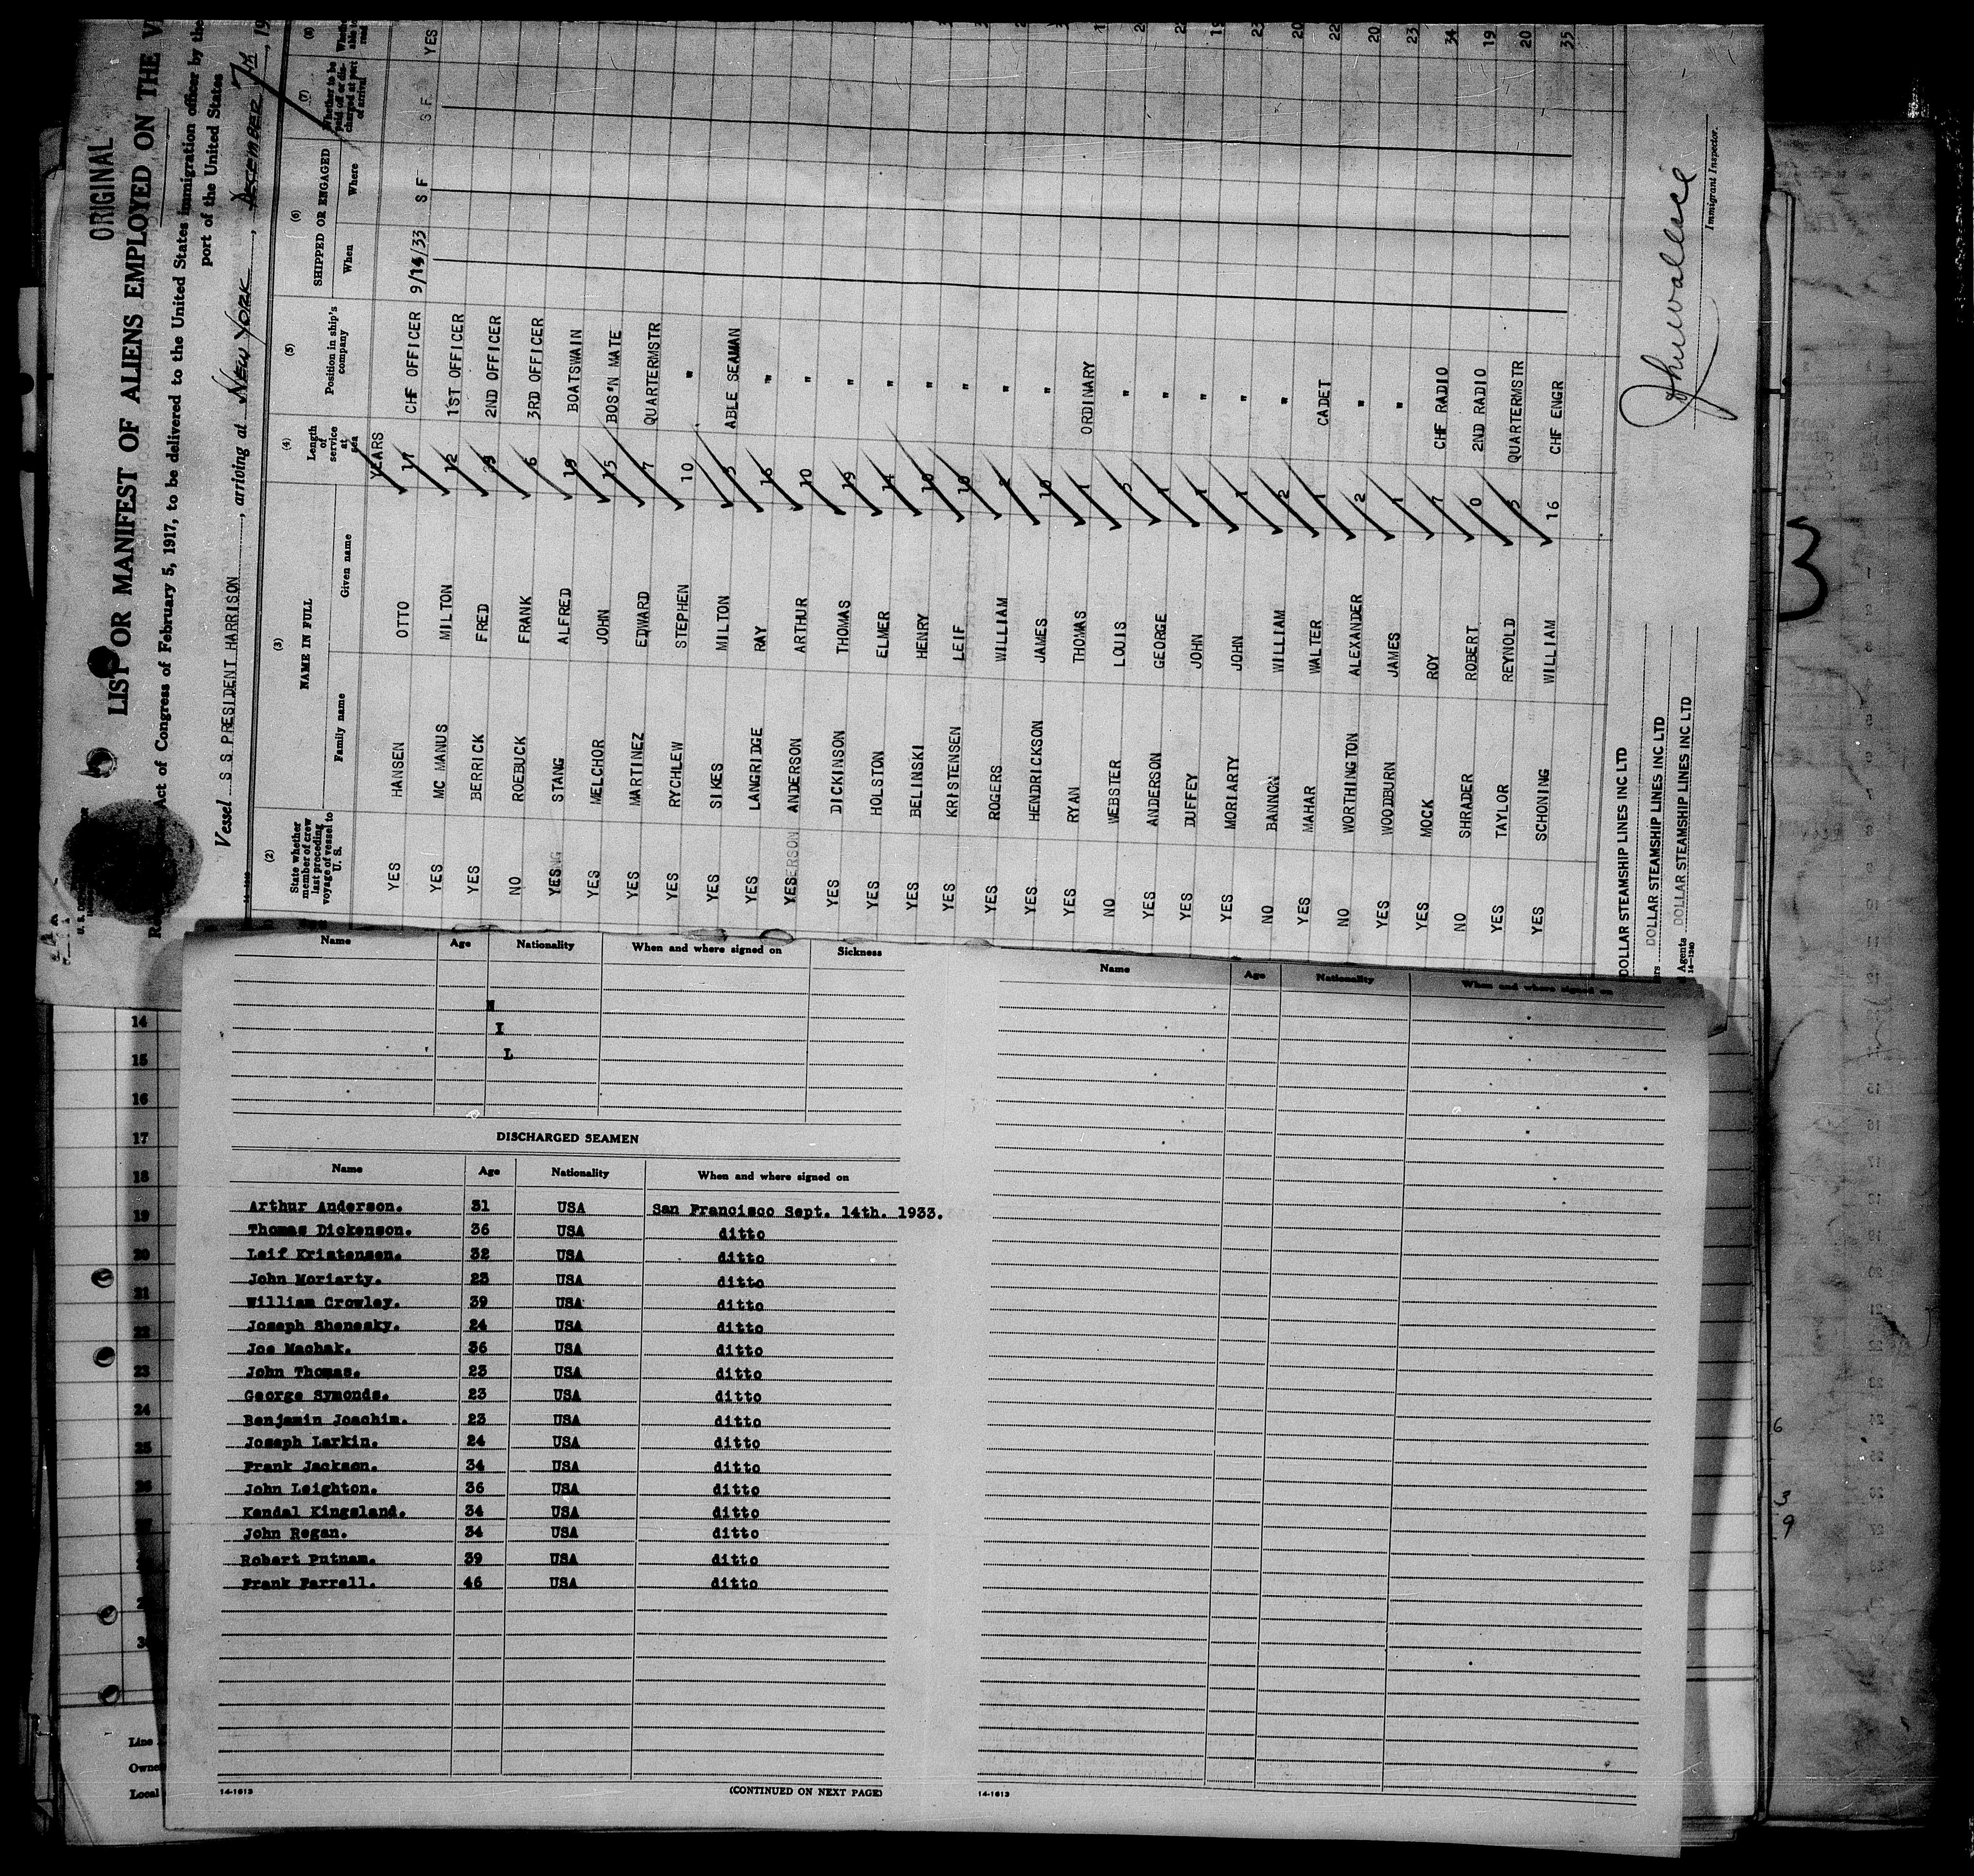 ORIGINAL
LIST OR MANIFEST OF ALIENS EMPLOYED ON THE
Act of Congress of February 5, 1917, to be delivered to the United States immigration officer by the
port of the United States
Vessel S S PRESIDENT HARRISON, arriving at New York, DECEMBER 7th, 19
(2) (3) (4) (5) (6) (7) (8)
State whether member of crew last preceding voyage of vessel to U. S. NAME IN FULL Length of service at sea Position in ship's company SHIPPED OR ENGAGED Whether to be paid off or discharged at port of arrival
Family name Given name When Where
YEARS
YES HANSEN OTTO 17 CHF OFFICER 9/14/33 S F S F YES
YES MC MANUS MILTON 12 1ST OFFICER
YES BERRICK FRED 2ND OFFICER
NO ROEBUCK FRANK 6 3RD OFFICER
YES STANG ALFRED BOATSWAIN
YES MELCHOR JOHN 15 BOS'N MATE
YES MARTINEZ EDWARD 7 QUARTERMSTR
YES RYCHLEW STEPHEN 10 "
YES SIKES MILTON ABLE SEAMAN
YES LANGRIDGE RAY 16 "
YES ANDERSON ARTHUR 10 "
YES DICKINSON THOMAS 19 "
YES HOLSTON ELMER 14 "
YES BELINSKI HENRY 10 "
YES KRISTENSEN LEIF 10 "
YES ROGERS WILLIAM "
YES HENDRICKSON JAMES 10 "
YES RYAN THOMAS 1 ORDINARY
NO WEBSTER LOUIS "
YES ANDERSON GEORGE 1 "
YES DUFFEY JOHN 1 "
YES MORIARTY JOHN 1 "
NO BANNON WILLIAM 2 "
YES MAHAR WALTER 1 CADET
NO WORTHINGTON ALEXANDER 2 "
YES WOODBURN JAMES 1 "
YES MOCK ROY 7 CHF RADIO
NO SHRADER ROBERT 0 2ND RADIO
YES TAYLOR REYNOLD QUARTERMSTR
YES SCHONING WILLIAM 16 CHF ENGR 35
DOLLAR STEAMSHIP LINES INC LTD
DOLLAR STEAMSHIP LINES INC LTD
Agents DOLLAR STEAMSHIP LINES INC LTD
14-1240
Immigrant Inspector.
Name Age Nationality When and where signed on Sickness
N
I
L
DISCHARGED SEAMEN
Name Age Nationality When and where signed on
Arthur Anderson. 31 USA San Francisco Sept. 14th. 1933.
Thomas Dickenson. 36 USA ditto
Leif Kristensen. 32 USA ditto
John Moriarty. 23 USA ditto
William Crowley. 39 USA ditto
Joseph Shenesky. 24 USA ditto
Joe Machak. 36 USA ditto
John Thomas. 23 USA ditto
George Symonds. 23 USA ditto
Benjamin Joachim. 23 USA ditto
Joseph Larkin. 24 USA ditto
Frank Jackson. 34 USA ditto
John Leighton. 36 USA ditto
Kendal Kingsland. 34 USA ditto
John Regan. 34 USA ditto
Robert Putnam. 39 USA ditto
Frank Farrell. 46 USA ditto
14-1613 (CONTINUED ON NEXT PAGE)
Name Age Nationality When and where signed on
14-1613
14
15
16
17
18
19
20
21
22
23
24
25
26
Line
Owne
Local
3
6
3
9